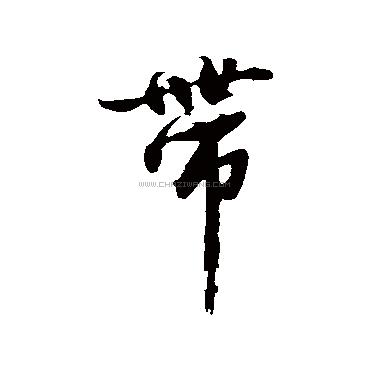 带
WWW.CHAZIWANG.COM